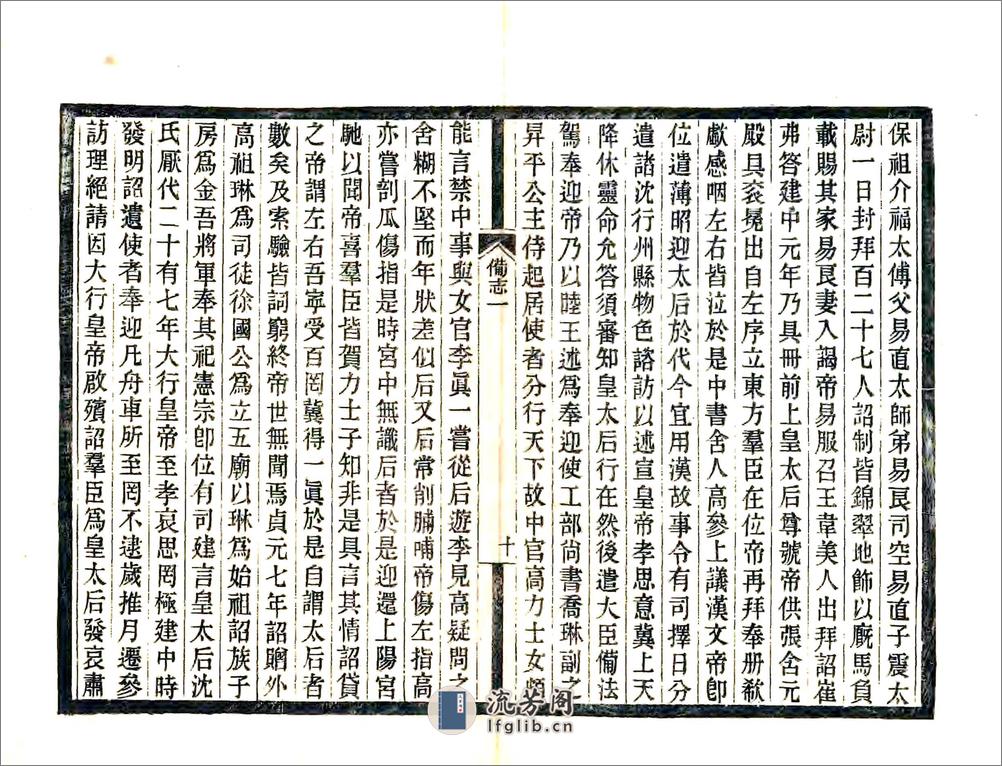 保祖介福太傅父易直太師弟易良司空易直子震太
尉一日封拜百二十七人詔制皆錦翠地飾以廐馬負
載賜其家易良妻入謁帝易服召王韋美人出拜詔崔
弗答建中元年乃具冊前上皇太后尊號帝供張含元
殿具衮冕出自左序立東方羣臣在位帝再拜奉册欷
歔感咽左右皆泣於是中書舍人高參上議漢文帝卽
位遣薄昭迎太后於代今宜用漢故事令有司擇日分
遣諸沈行州縣物色諮訪以述宣皇帝孝思意冀上天
降休靈命允答須審知皇太后行在然後遣大臣備法
駕奉迎帝乃以睦王述爲奉迎使工部尚書喬琳副之
昇平公主侍起居使者分行天下故中官高力士女頗
備志一
十
能言禁中事與女官李眞一嘗從后遊李見高疑問之
含糊不堅而年狀差似后又后常削脯哺帝傷左指高
亦嘗剖瓜傷指是時宮中無識后者於是迎還上陽宮
馳以聞帝喜羣臣皆賀力士子知非是具言其情詔貸
之帝謂左右吾寧受百罔冀得一眞於是自謂太后者
數矣及索驗皆詞窮終帝世無聞焉貞元七年詔贈外
高祖琳爲司徒徐國公爲立五廟以琳爲始祖詔族子
房爲金吾將軍奉其祀憲宗卽位有司建言皇太后沈
氏厭代二十有七年大行皇帝至孝哀思罔極建中時
發明詔遣使者奉迎凡舟車所至罔不逮歲推月遷參
訪理絕請因大行皇帝啟殯詔羣臣爲皇太后發哀肅
流芳閣
lfglib.cn